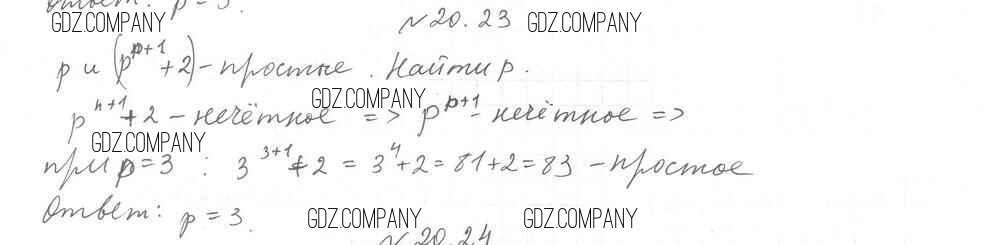 Ответ: p = 3.
GDZ.COMPANY № 20.23 GDZ.COMPANY
p и (p^{p+1} + 2) – простые. Найти p.
GDZ.COMPANY
p^{n+1} + 2 – нечётное => p^{p+1} – нечётное =>
GDZ.COMPANY
при p = 3 : 3^{3+1} + 2 = 3^4 + 2 = 81 + 2 = 83 – простое
Ответ: p = 3. GDZ.COMPANY GDZ.COMPANY
№ 20.24